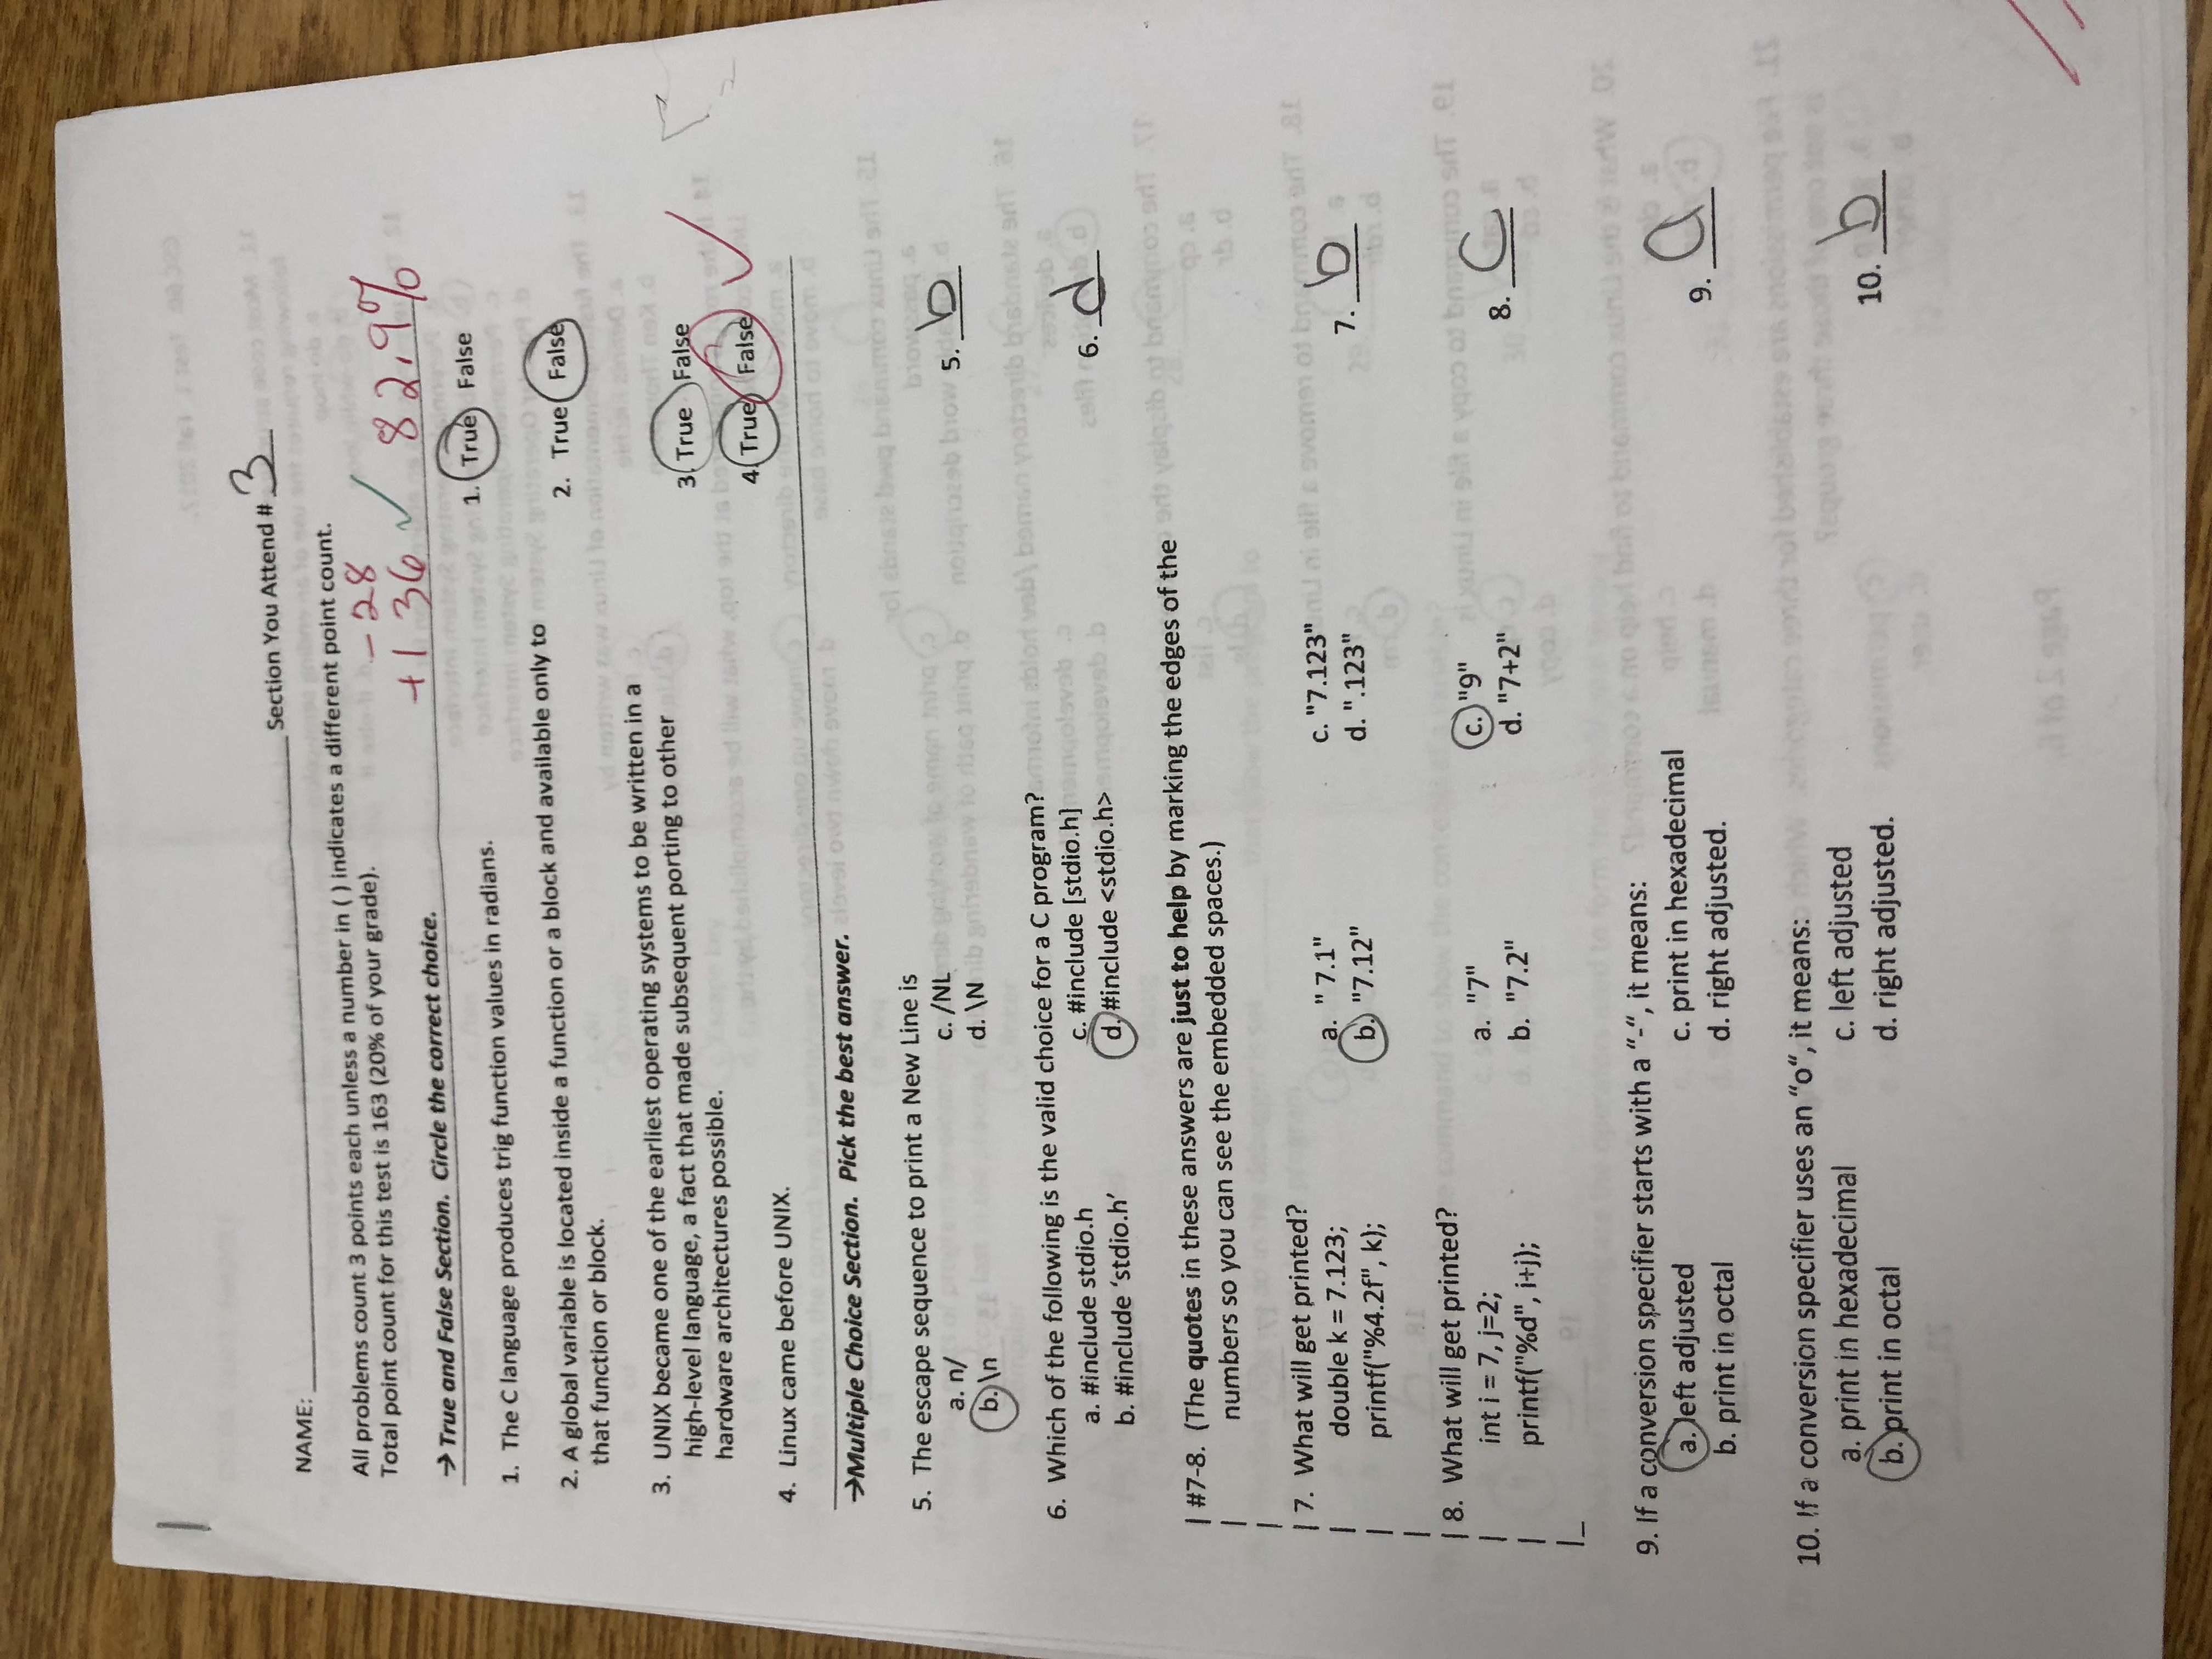 NAME: ____________ Section You Attend # 3
All problems count 3 points each unless a number in ( ) indicates a different point count.
Total point count for this test is 163 (20% of your grade).
-28
+136 ✓ 82.9%
→ True and False Section. Circle the correct choice.
1. The C language produces trig function values in radians. 1. True False
2. A global variable is located inside a function or a block and available only to
that function or block. 2. True False
3. UNIX became one of the earliest operating systems to be written in a
high-level language, a fact that made subsequent porting to other
hardware architectures possible. 3. True False
4. Linux came before UNIX. 4. True False ✓
→Multiple Choice Section. Pick the best answer.
5. The escape sequence to print a New Line is
a. n/ c. /NL
b. \n d. \N 5. b
6. Which of the following is the valid choice for a C program?
a. #include stdio.h c. #include [stdio.h]
b. #include ‘stdio.h’ d. #include <stdio.h> 6. d
#7-8. (The quotes in these answers are just to help by marking the edges of the
numbers so you can see the embedded spaces.)
7. What will get printed?
double k = 7.123; a. " 7.1" c. "7.123"
printf("%4.2f", k); b. "7.12" d. ".123" 7. b
8. What will get printed?
int i = 7, j=2; a. "7" c. "9"
printf("%d", i+j); b. "7.2" d. "7+2" 8. C
9. If a conversion specifier starts with a “-“, it means:
a. left adjusted c. print in hexadecimal
b. print in octal d. right adjusted. 9. a
10. If a conversion specifier uses an “o“, it means:
a. print in hexadecimal c. left adjusted
b. print in octal d. right adjusted. 10. b